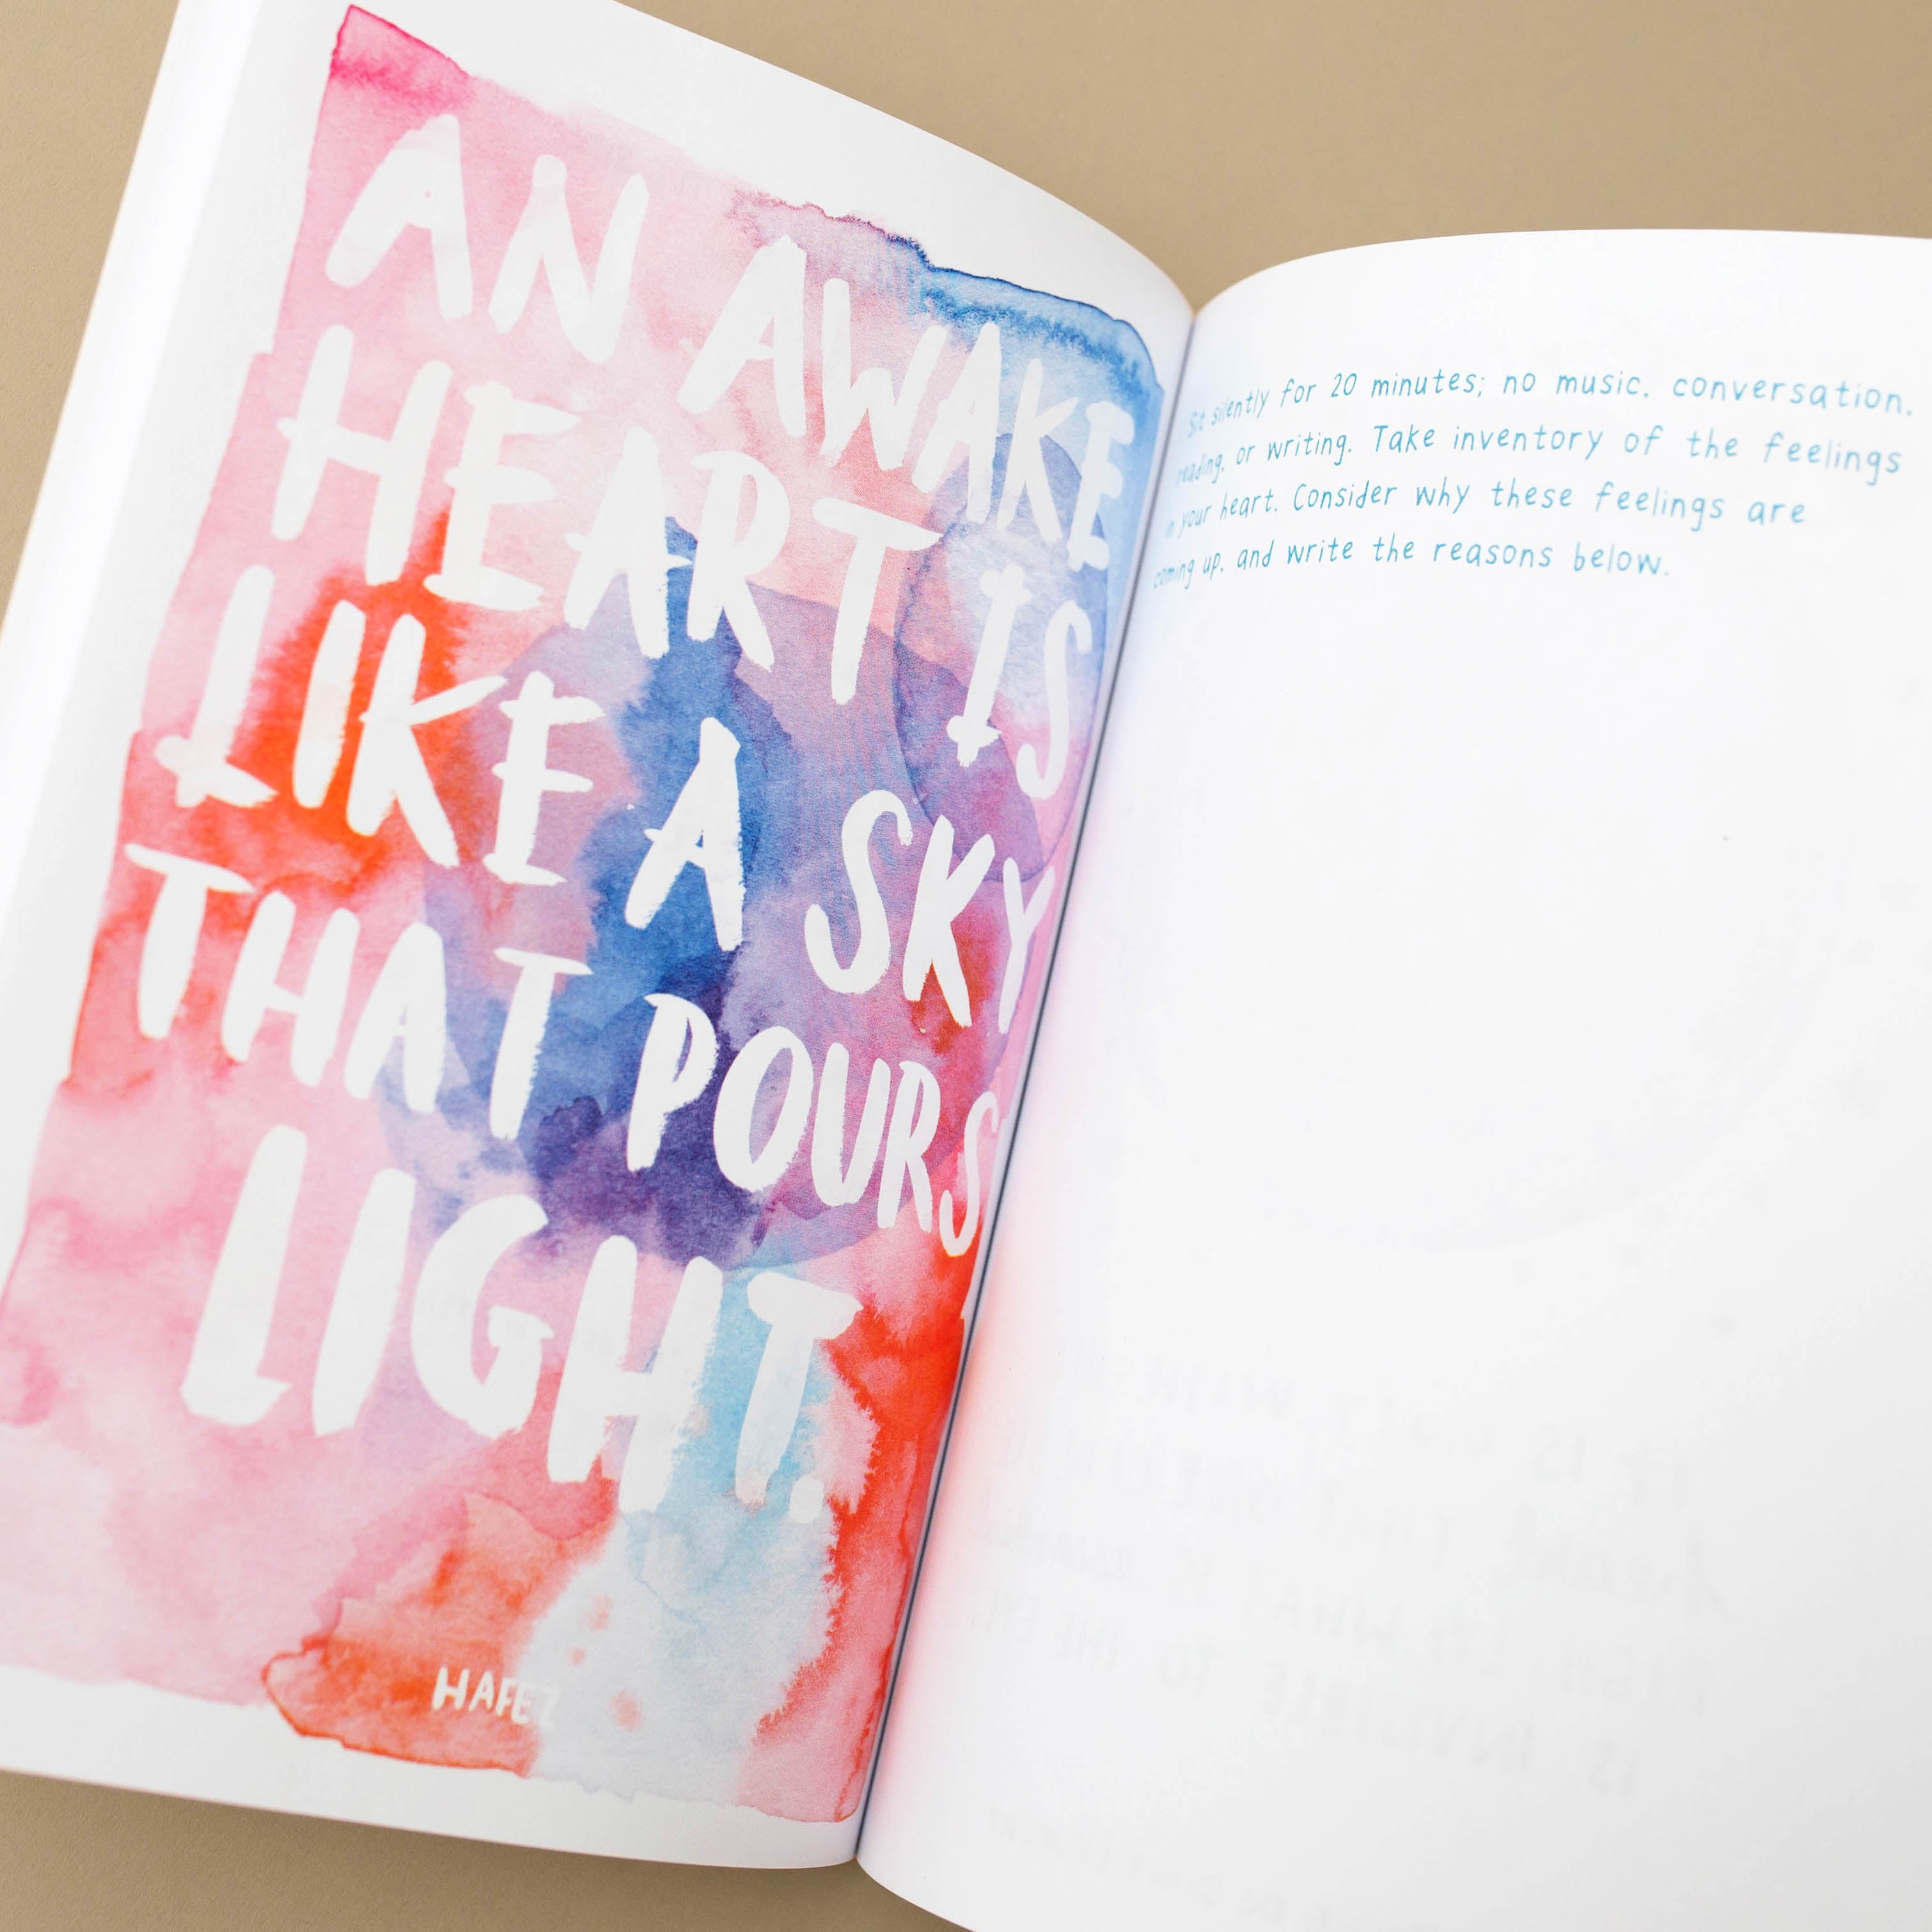 AN AWAKE
HEART IS
LIKE A SKY
THAT POURS
LIGHT.
HAFEZ
Sit silently for 20 minutes; no music, conversation,
reading, or writing. Take inventory of the feelings
in your heart. Consider why these feelings are
coming up, and write the reasons below.